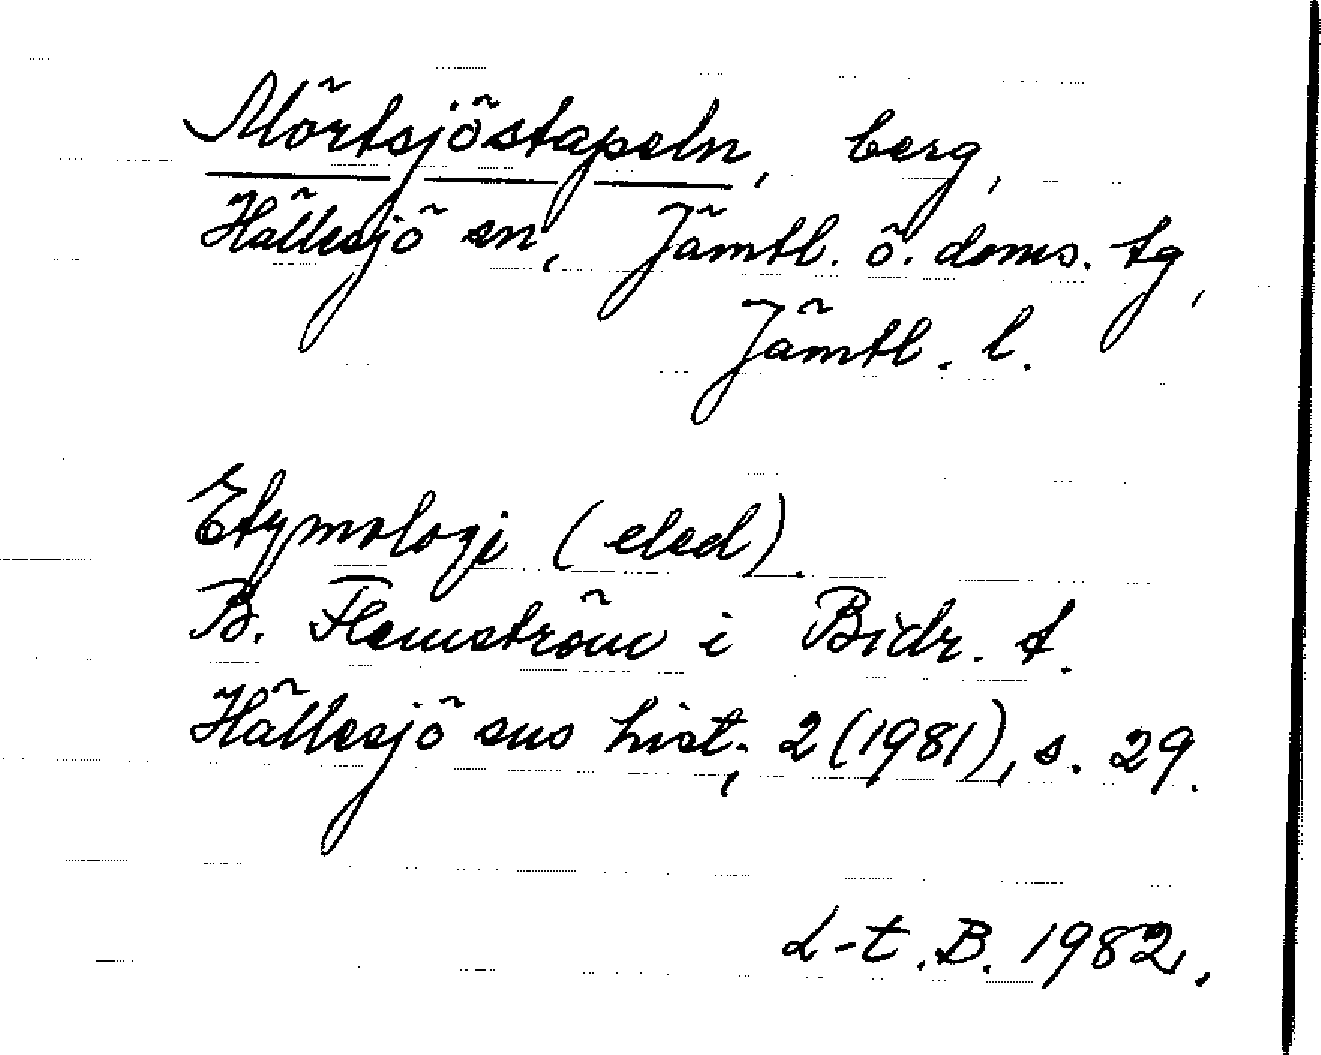 Mörtsjöstapeln, berg,
Hällesjö sn, Jämtl. ö. doms. tg,
Jämtl. l.
Etymologi (eled).
B. Flemström i Bidr. t.
Hällesjö sns hist., 2 (1981), s. 29.
L-t. B. 1982.